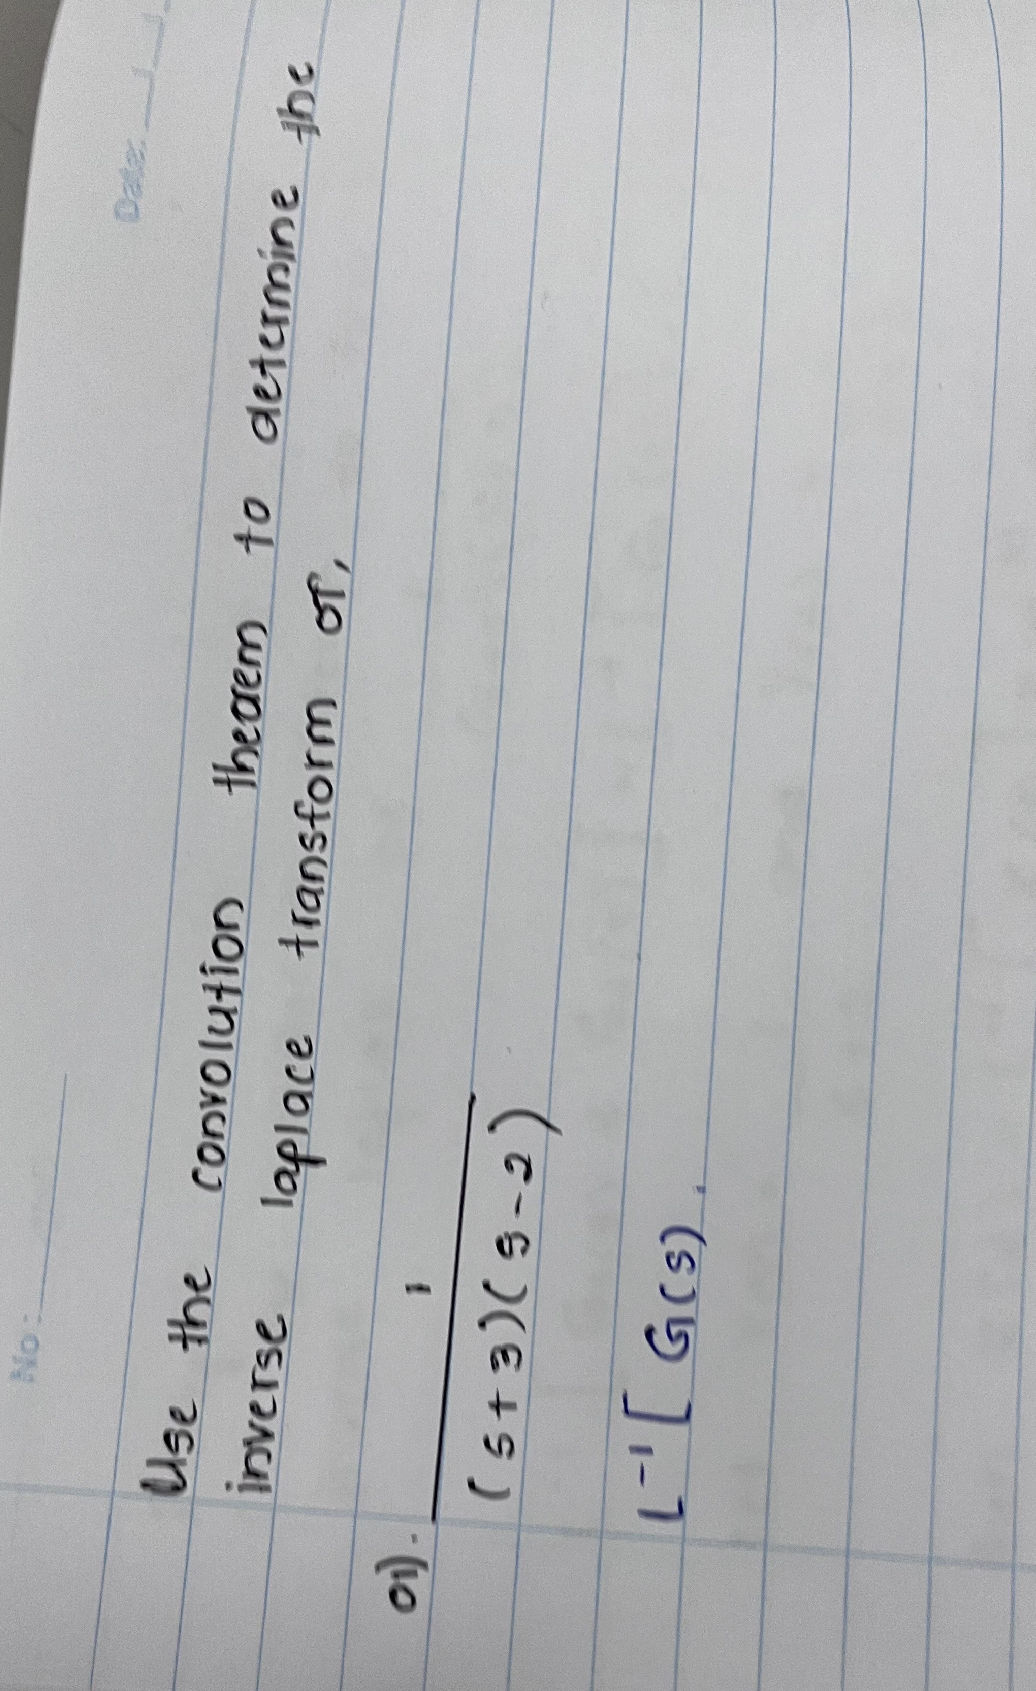 No:
Date:
Use the convolution thearem to determine the
inverse laplace transform of,
01). 1
(s+3)(s-2)
L⁻¹[ G(s).